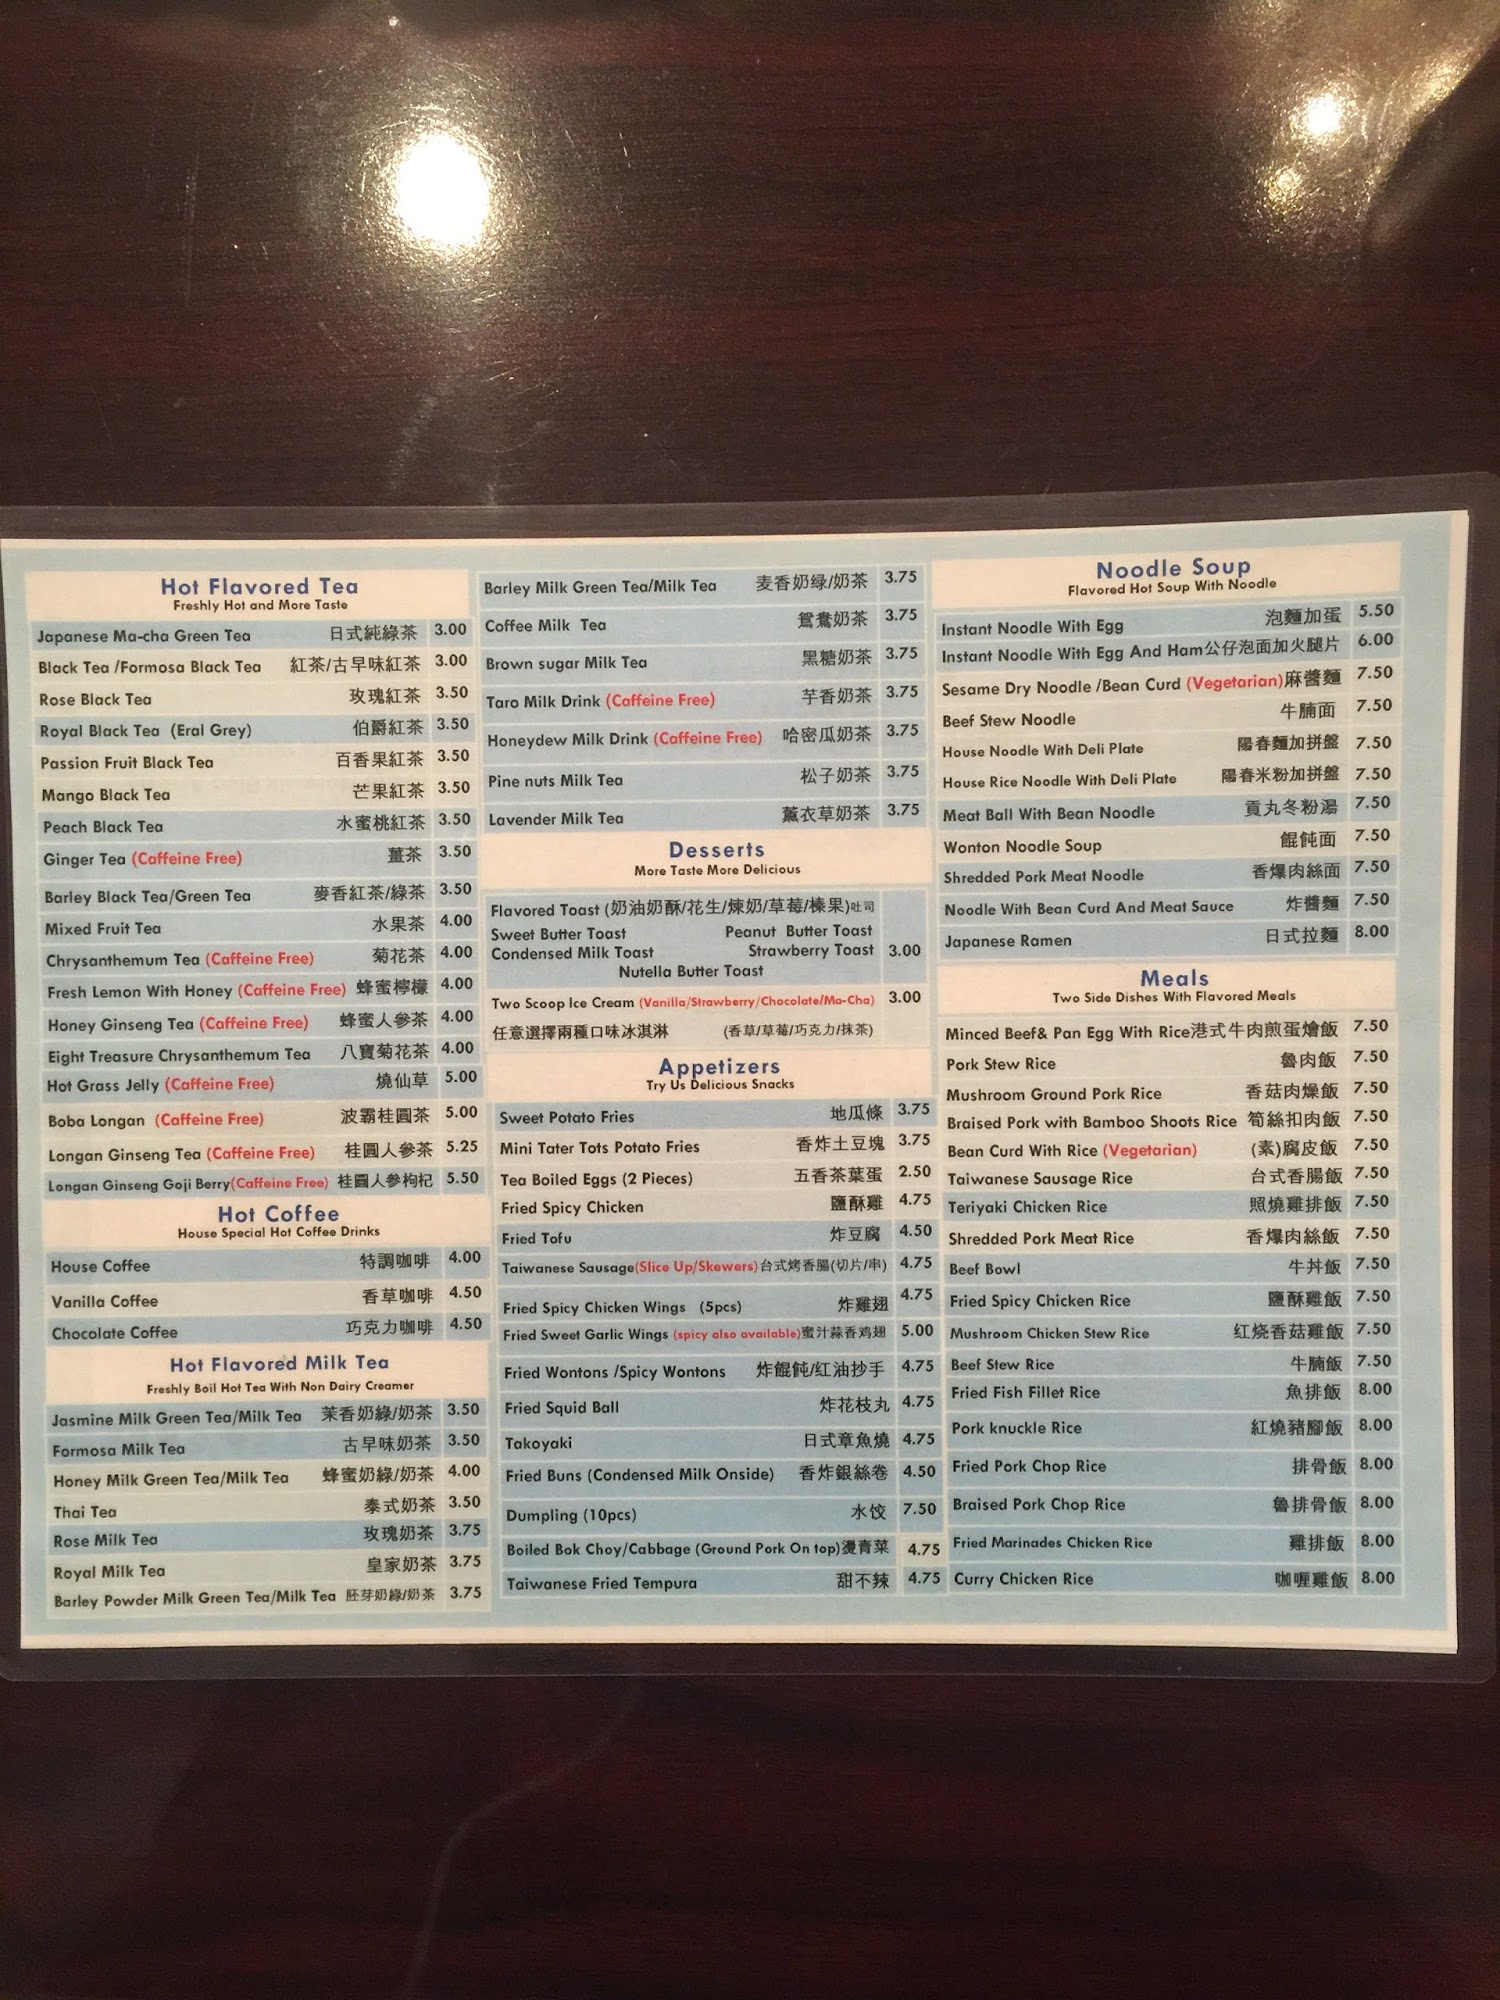 Hot Flavored Tea
Freshly Hot and More Taste
Japanese Ma-cha Green Tea 日式純綠茶 3.00
Black Tea /Formosa Black Tea 紅茶/古早味紅茶 3.00
Rose Black Tea 玫瑰紅茶 3.50
Royal Black Tea (Eral Grey) 伯爵紅茶 3.50
Passion Fruit Black Tea 百香果紅茶 3.50
Mango Black Tea 芒果紅茶 3.50
Peach Black Tea 水蜜桃紅茶 3.50
Ginger Tea (Caffeine Free) 薑茶 3.50
Barley Black Tea/Green Tea 麥香紅茶/綠茶 3.50
Mixed Fruit Tea 水果茶 4.00
Chrysanthemum Tea (Caffeine Free) 菊花茶 4.00
Fresh Lemon With Honey (Caffeine Free) 蜂蜜檸檬 4.00
Honey Ginseng Tea (Caffeine Free) 蜂蜜人參茶 4.00
Eight Treasure Chrysanthemum Tea 八寶菊花茶 4.00
Hot Grass Jelly (Caffeine Free) 燒仙草 5.00
Boba Longan (Caffeine Free) 波霸桂圓茶 5.00
Longan Ginseng Tea (Caffeine Free) 桂圓人參茶 5.25
Longan Ginseng Goji Berry(Caffeine Free) 桂圓人參枸杞 5.50
Hot Coffee
House Special Hot Coffee Drinks
House Coffee 特調咖啡 4.00
Vanilla Coffee 香草咖啡 4.50
Chocolate Coffee 巧克力咖啡 4.50
Hot Flavored Milk Tea
Freshly Boil Hot Tea With Non Dairy Creamer
Jasmine Milk Green Tea/Milk Tea 茉香奶綠/奶茶 3.50
Formosa Milk Tea 古早味奶茶 3.50
Honey Milk Green Tea/Milk Tea 蜂蜜奶綠/奶茶 4.00
Thai Tea 泰式奶茶 3.50
Rose Milk Tea 玫瑰奶茶 3.75
Royal Milk Tea 皇家奶茶 3.75
Barley Powder Milk Green Tea/Milk Tea 胚芽奶綠/奶茶 3.75
Barley Milk Green Tea/Milk Tea 麦香奶绿/奶茶 3.75
Coffee Milk Tea 鴛鴦奶茶 3.75
Brown sugar Milk Tea 黑糖奶茶 3.75
Taro Milk Drink (Caffeine Free) 芋香奶茶 3.75
Honeydew Milk Drink (Caffeine Free) 哈密瓜奶茶 3.75
Pine nuts Milk Tea 松子奶茶 3.75
Lavender Milk Tea 薰衣草奶茶 3.75
Desserts
More Taste More Delicious
Flavored Toast (奶油奶酥/花生/煉奶/草莓/榛果)吐司
Sweet Butter Toast Peanut Butter Toast
Condensed Milk Toast Strawberry Toast 3.00
Nutella Butter Toast
Two Scoop Ice Cream (Vanilla/Strawberry/Chocolate/Ma-Cha) 3.00
任意選擇兩種口味冰淇淋 (香草/草莓/巧克力/抹茶)
Appetizers
Try Us Delicious Snacks
Sweet Potato Fries 地瓜條 3.75
Mini Tater Tots Potato Fries 香炸土豆塊 3.75
Tea Boiled Eggs (2 Pieces) 五香茶葉蛋 2.50
Fried Spicy Chicken 鹽酥雞 4.75
Fried Tofu 炸豆腐 4.50
Taiwanese Sausage(Slice Up/Skewers) 台式烤香腸(切片/串) 4.75
Fried Spicy Chicken Wings (5pcs) 炸雞翅 4.75
Fried Sweet Garlic Wings (spicy also available)蜜汁蒜香鸡翅 5.00
Fried Wontons /Spicy Wontons 炸餛飩/红油抄手 4.75
Fried Squid Ball 炸花枝丸 4.75
Takoyaki 日式章魚燒 4.75
Fried Buns (Condensed Milk Onside) 香炸銀絲卷 4.50
Dumpling (10pcs) 水饺 7.50
Boiled Bok Choy/Cabbage (Ground Pork On top)燙青菜 4.75
Taiwanese Fried Tempura 甜不辣 4.75
Noodle Soup
Flavored Hot Soup With Noodle
Instant Noodle With Egg 泡麵加蛋 5.50
Instant Noodle With Egg And Ham公仔泡面加火腿片 6.00
Sesame Dry Noodle /Bean Curd (Vegetarian)麻醬麵 7.50
Beef Stew Noodle 牛腩面 7.50
House Noodle With Deli Plate 陽春麵加拼盤 7.50
House Rice Noodle With Deli Plate 陽春米粉加拼盤 7.50
Meat Ball With Bean Noodle 貢丸冬粉湯 7.50
Wonton Noodle Soup 餛飩面 7.50
Shredded Pork Meat Noodle 香爆肉絲面 7.50
Noodle With Bean Curd And Meat Sauce 炸醬麵 7.50
Japanese Ramen 日式拉麵 8.00
Meals
Two Side Dishes With Flavored Meals
Minced Beef& Pan Egg With Rice港式牛肉煎蛋燴飯 7.50
Pork Stew Rice 魯肉飯 7.50
Mushroom Ground Pork Rice 香菇肉燥飯 7.50
Braised Pork with Bamboo Shoots Rice 筍絲扣肉飯 7.50
Bean Curd With Rice (Vegetarian) (素)腐皮飯 7.50
Taiwanese Sausage Rice 台式香腸飯 7.50
Teriyaki Chicken Rice 照燒雞排飯 7.50
Shredded Pork Meat Rice 香爆肉絲飯 7.50
Beef Bowl 牛丼飯 7.50
Fried Spicy Chicken Rice 鹽酥雞飯 7.50
Mushroom Chicken Stew Rice 红烧香菇雞飯 7.50
Beef Stew Rice 牛腩飯 7.50
Fried Fish Fillet Rice 魚排飯 8.00
Pork knuckle Rice 紅燒豬腳飯 8.00
Fried Pork Chop Rice 排骨飯 8.00
Braised Pork Chop Rice 魯排骨飯 8.00
Fried Marinades Chicken Rice 雞排飯 8.00
Curry Chicken Rice 咖喱雞飯 8.00